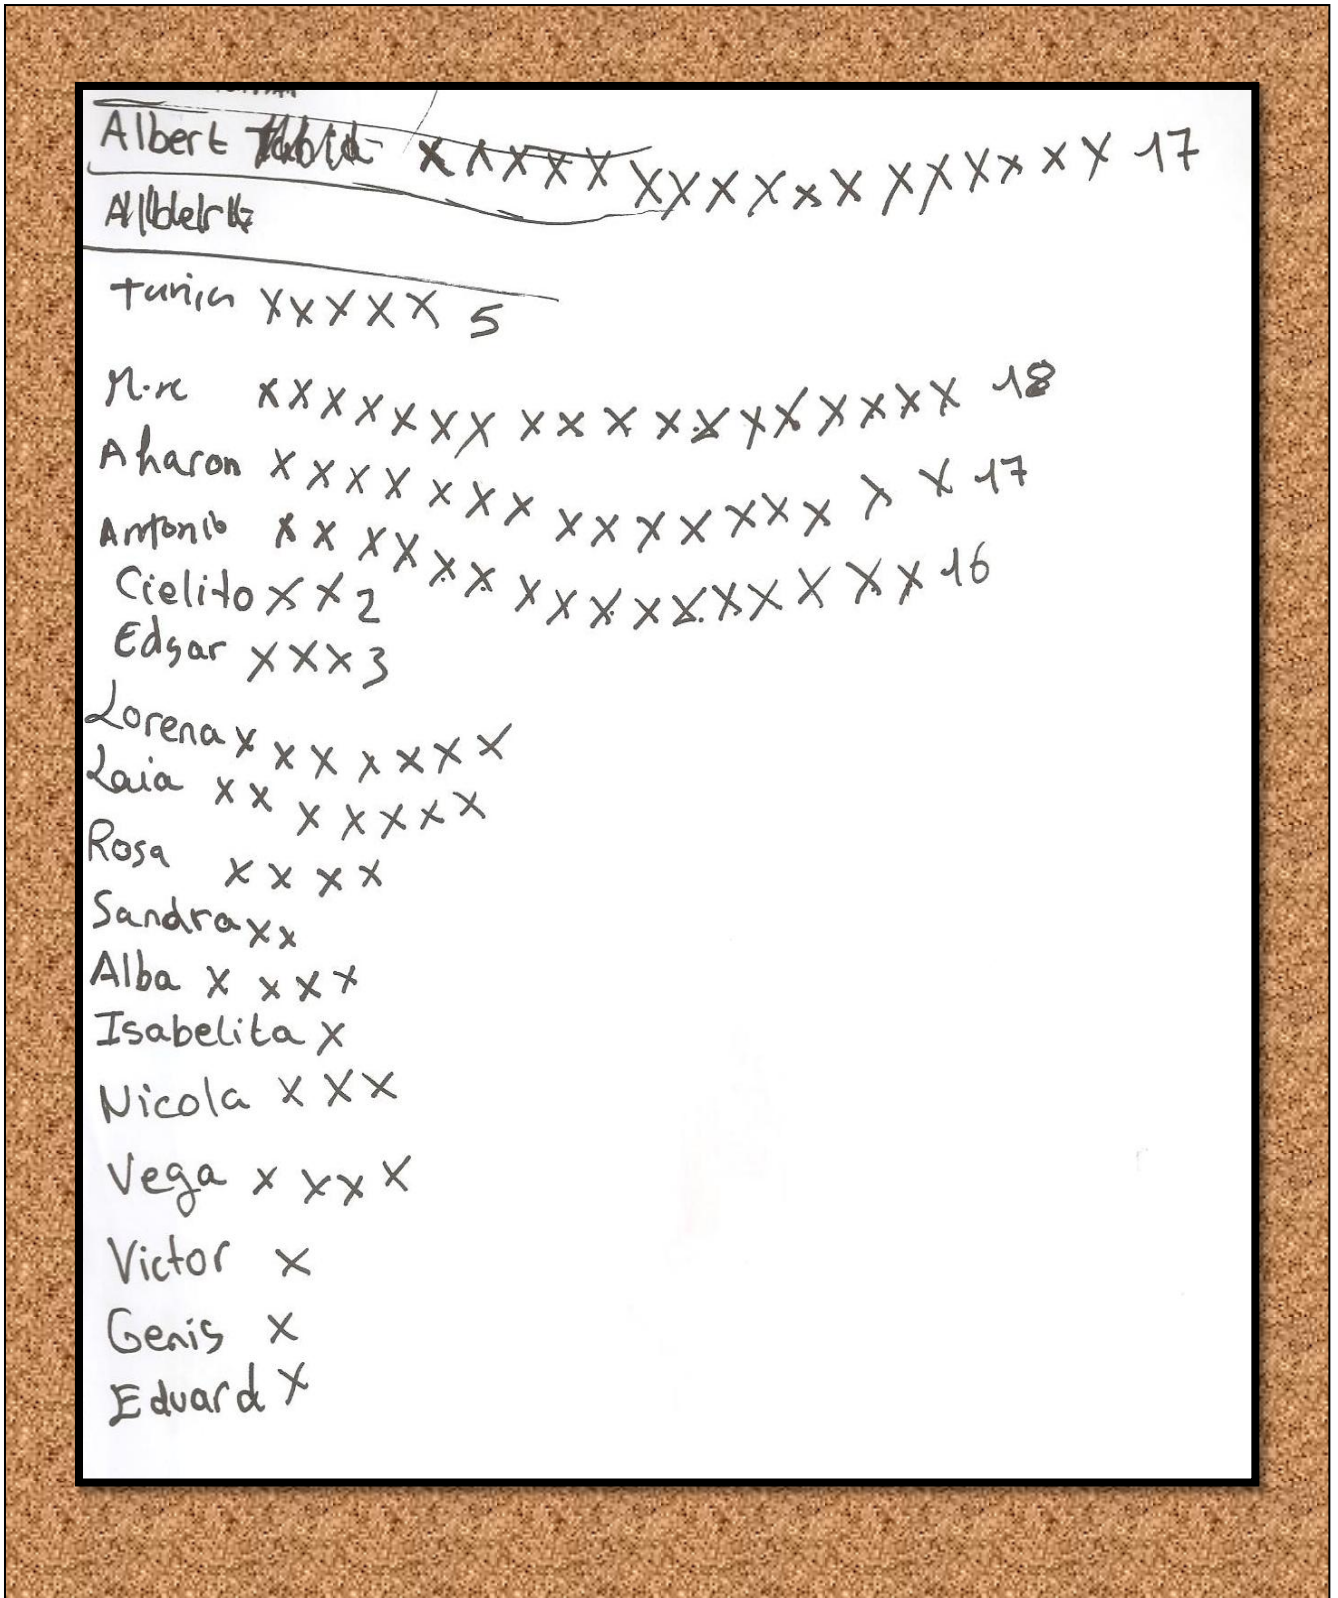 Albert X X X X X X X X X X X X X X X X X 17
Albert
Tania X X X X X 5
X X X X X X X X X X X X X X X X X X 18
Aharon X X X X X X X X X X X X X X X X X 17
Antonio X X X X X X X X X X X X X X X X 16
Cielito X X 2
Edgar X X X 3
Lorena X X X X X X X
Laia X X X X X X X
Rosa X X X X
Sandra X X
Alba X X X X
Isabelita X
Nicola X X X
Vega X X X X
Victor X
Genis X
Eduard X